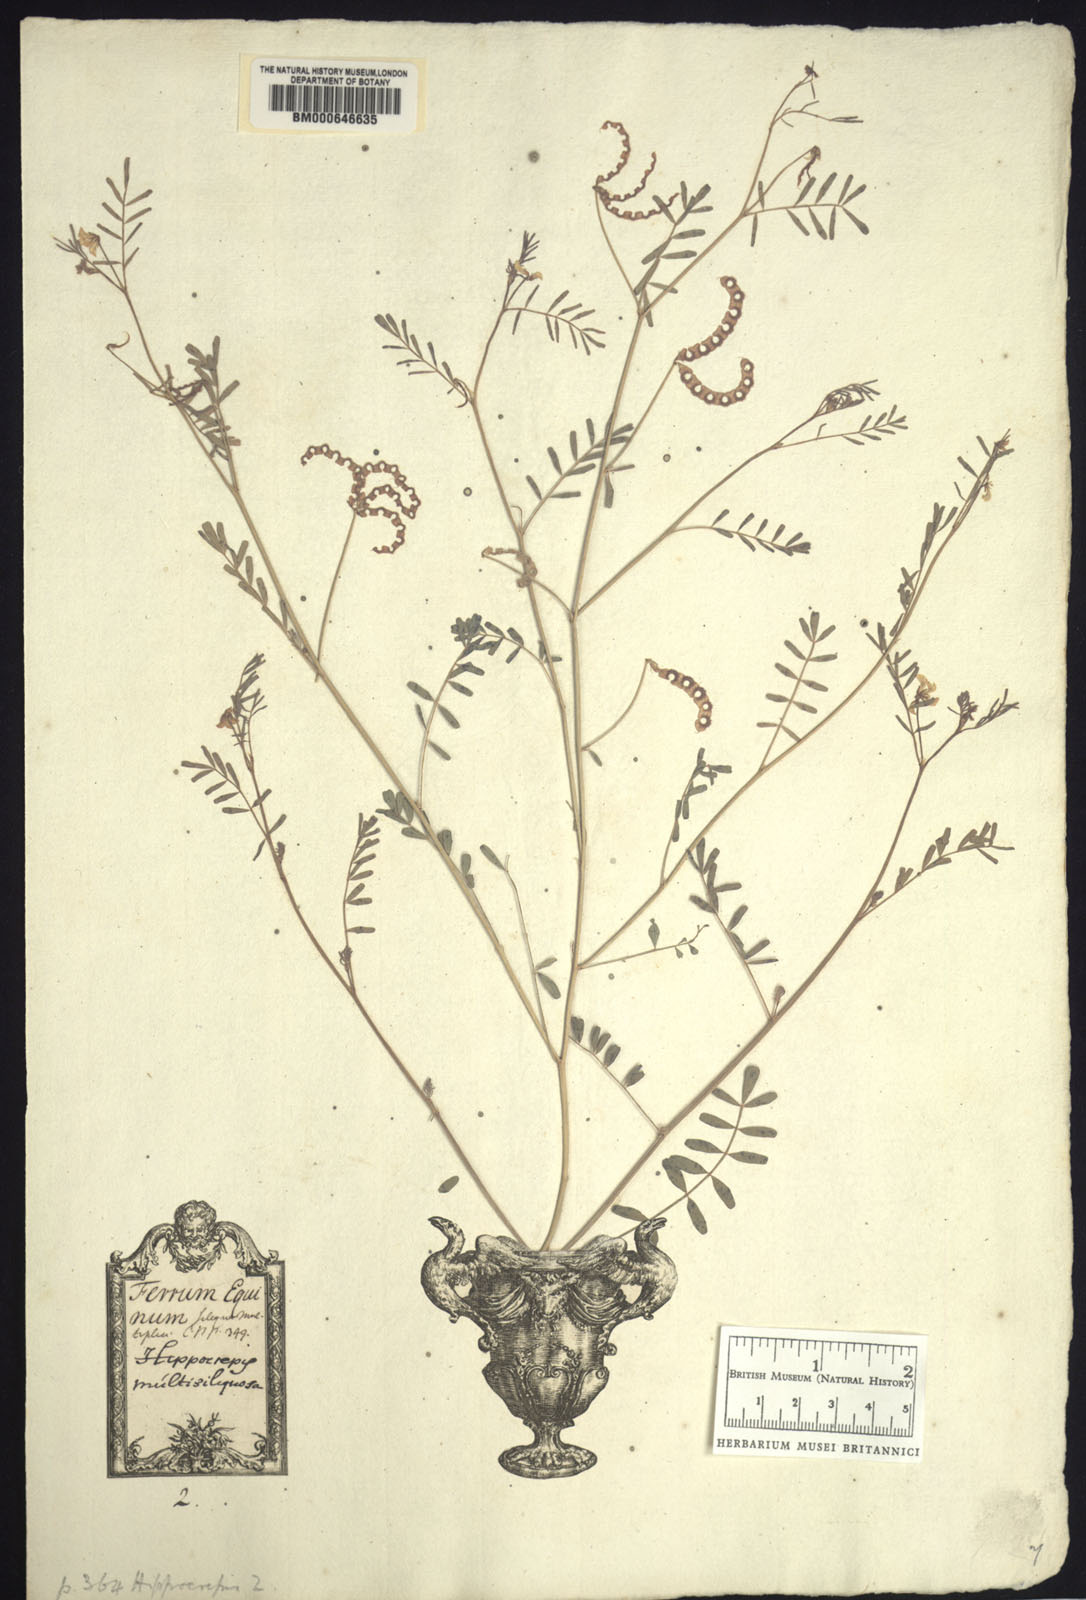 THE NATURAL HISTORY MUSEUM, LONDON
DEPARTMENT OF BOTANY
BM000646635
Ferrum Equi
num siliqua mul-
tiplici. C.B.P. 349.
Hippocrepis
multisiliquosa
2.
1 2
BRITISH MUSEUM (NATURAL HISTORY)
1 2 3 4 5
HERBARIUM MUSEI BRITANNICI
p. 364 Hippocrepis 2.